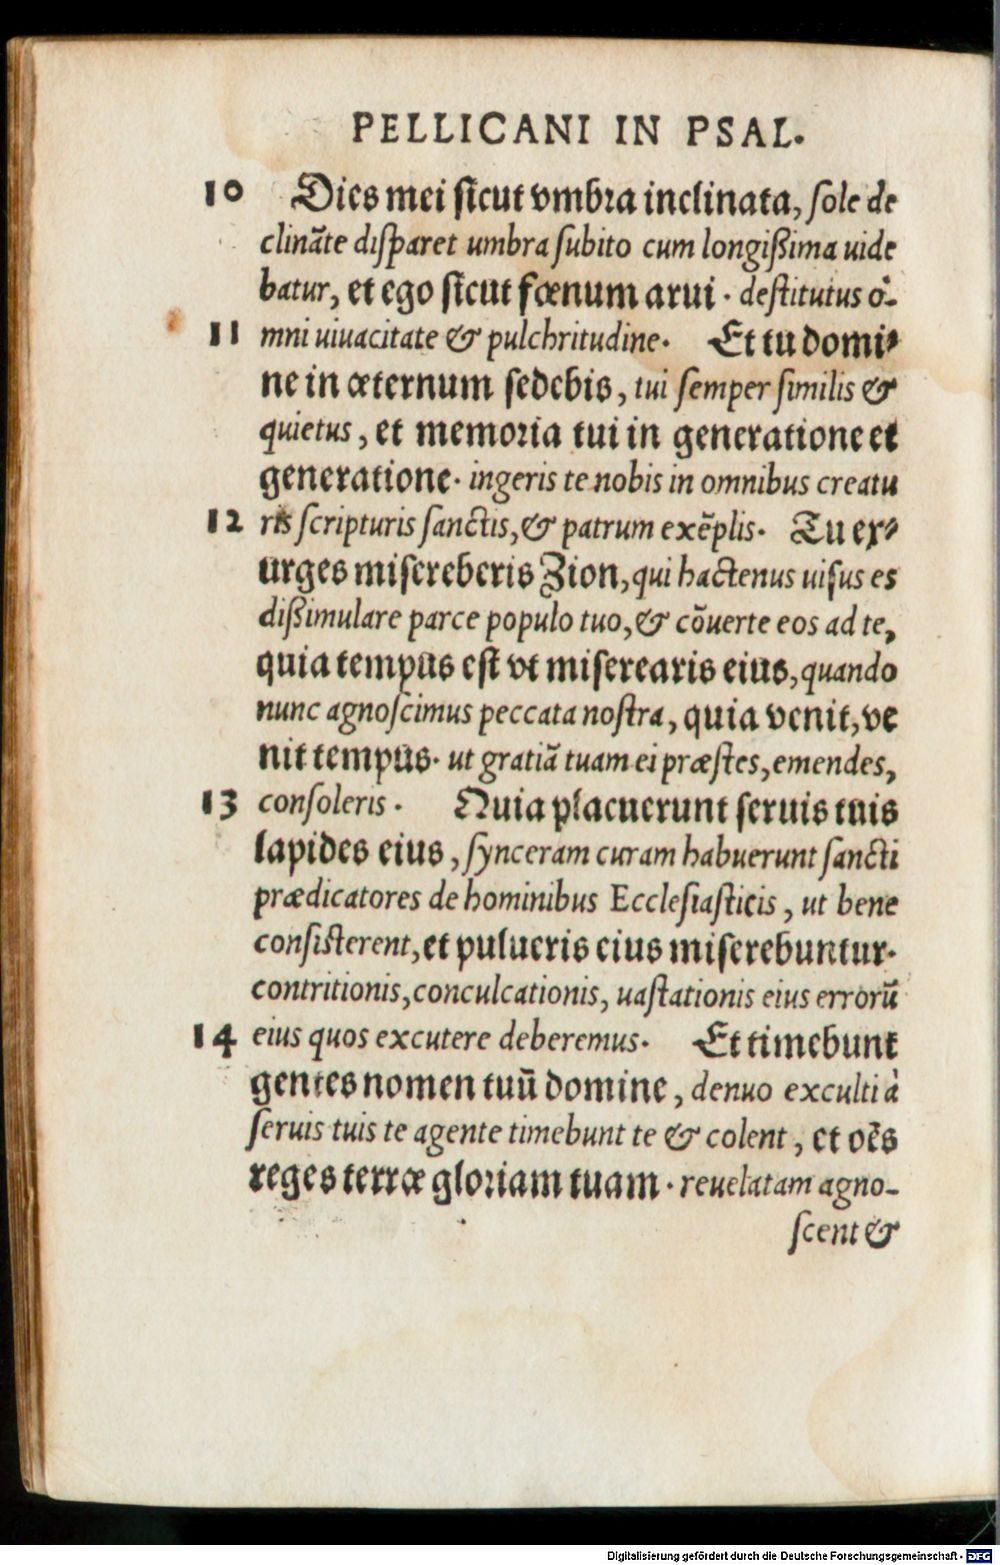 PELLICANI IN PSAL.
10 Dies mei sicut vmbra inclinata, sole de
clināte disparet umbra subito cum longißima uide
batur, et ego sicut fœnum arui. destitutus o-
11 mni uiuacitate & pulchritudine. Et tu domi-
ne in æternum sedebis, tui semper similis &
quietus, et memoria tui in generatione et
generatione. ingeris te nobis in omnibus creatu
12 ris scripturis sanctis, & patrum exēplis. Tu ex-
urges misereberis Zion, qui hactenus uisus es
dißimulare parce populo tuo, & cōuerte eos ad te,
quia tempus est vt miserearis eius, quando
nunc agnoscimus peccata nostra, quia venit, ve
nit tempus. ut gratiā tuam ei præstes, emendes,
13 consoleris. Quia placuerunt seruis tuis
lapides eius, synceram curam habuerunt sancti
prædicatores de hominibus Ecclesiasticis, ut bene
consisterent, et pulueris eius miserebuntur.
contritionis, conculcationis, uastationis eius errorū
14 eius quos excutere deberemus. Et timebunt
gentes nomen tuū domine, denuo exculti à
seruis tuis te agente timebunt te & colent, et oēs
reges terræ gloriam tuam. reuelatam agno-
scent &
Digitalisierung gefördert durch die Deutsche Forschungsgemeinschaft - DFG